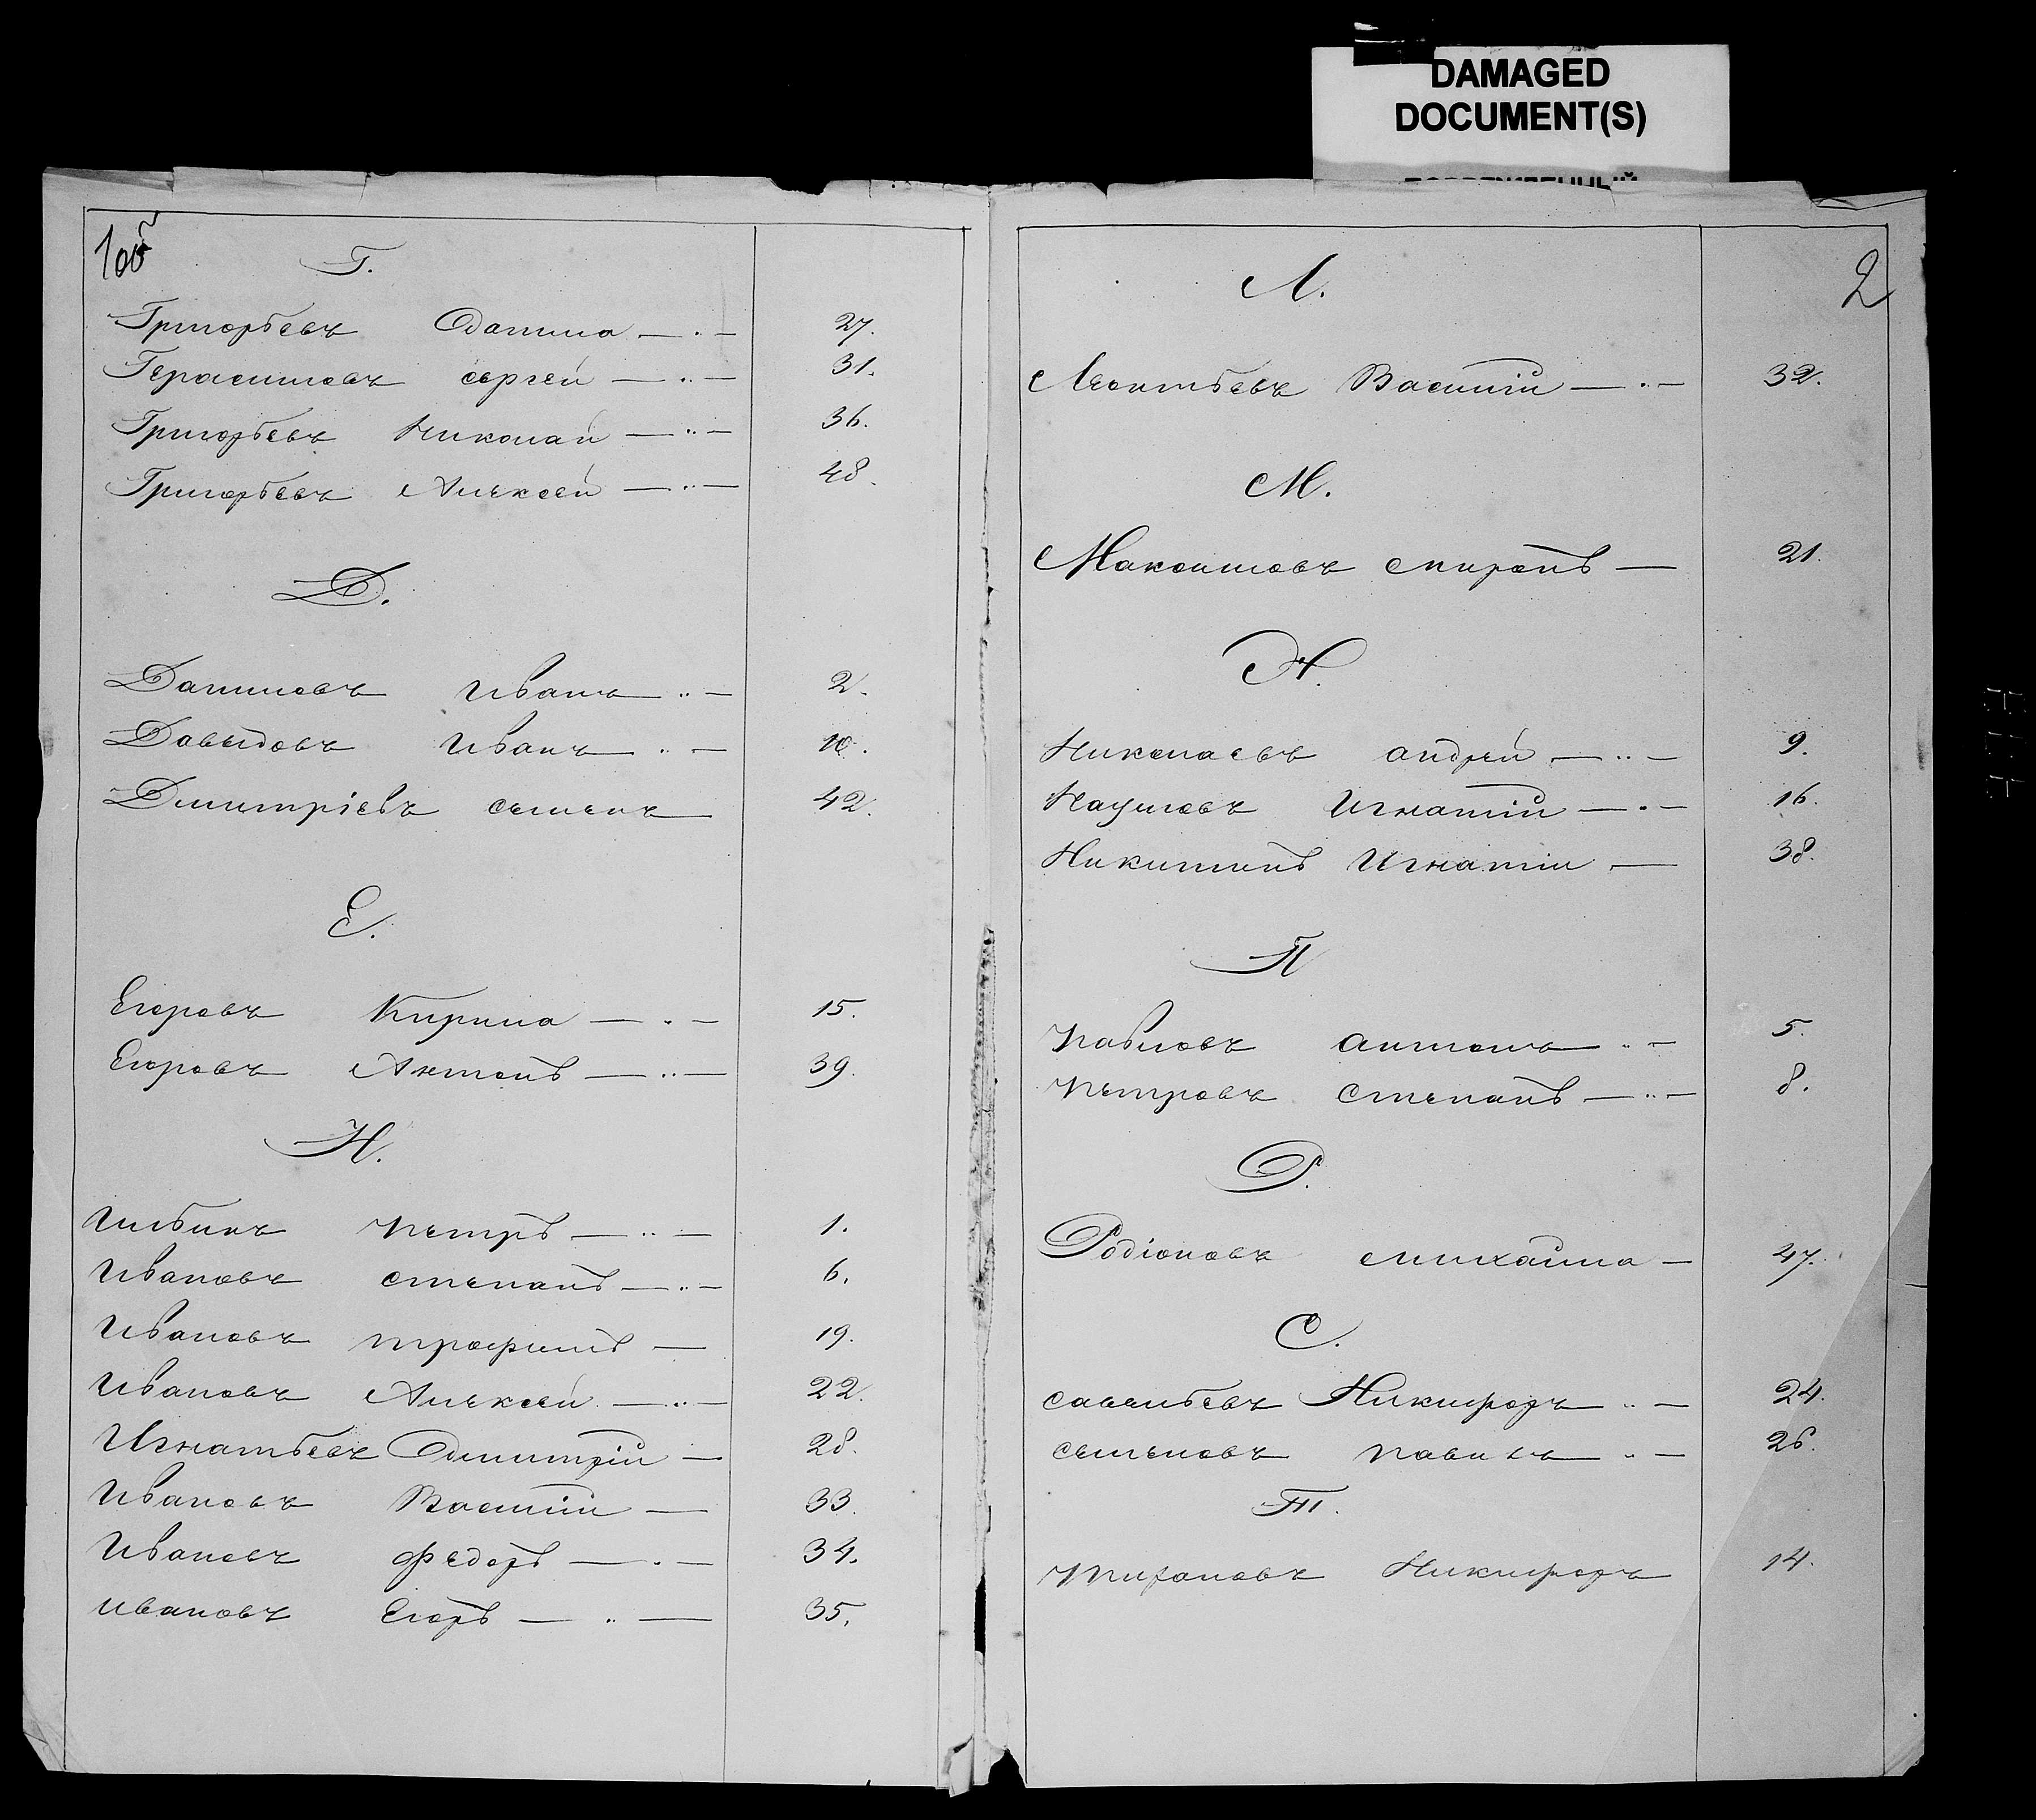 DAMAGED
DOCUMENT(S)
1об
Г.
Григорьевъ Данила — „ — 27.
Герасимовъ Сергей — „ — 31.
Григорьевъ Николай — „ — 36.
Григорьевъ Алексей — „ — 48.
Д.
Даниловъ Иванъ — „ — 2.
Давыдовъ Иванъ — „ — 10.
Дмитріевъ Семенъ — 42.
Е.
Егоровъ Кирила — „ — 15.
Егоровъ Антонъ — „ — 39.
И.
Ильинъ Петръ — „ — 1.
Ивановъ Степанъ — „ — 6.
Ивановъ Трофимъ — 19.
Ивановъ Алексей — „ — 22.
Игнатьевъ Дмитрій — 28.
Ивановъ Василій — 33.
Ивановъ Федоръ — „ — 34.
Ивановъ Егоръ — „ — 35.
2
Л.
Леонтьевъ Василій — „ — 32.
М.
Максимовъ Миронъ — 21.
Н.
Николаевъ Андрей — „ — 9.
Наумовъ Игнатій — „ — 16.
Никитинъ Игнатій — 38.
П
Павловъ Антонъ — „ — 5.
Петровъ Степанъ — „ — 8.
Р.
Родіоновъ Михаила — 47.
С.
Савельевъ Никифоръ — „ — 24.
Семеновъ Павелъ — „ — 26.
Т.
Никифоръ 14.